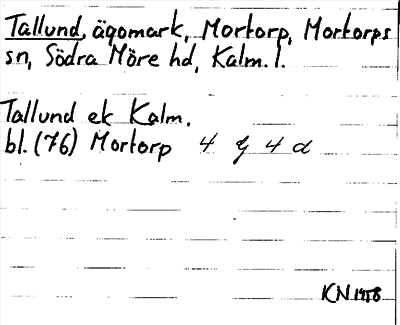 Tallund, ägomark, Mortorp, Mortorps
sn, Södra Möre hd, Kalm. l.
Tallund ek Kalm.
bl. (76) Mortorp 4 G 4 d
KN